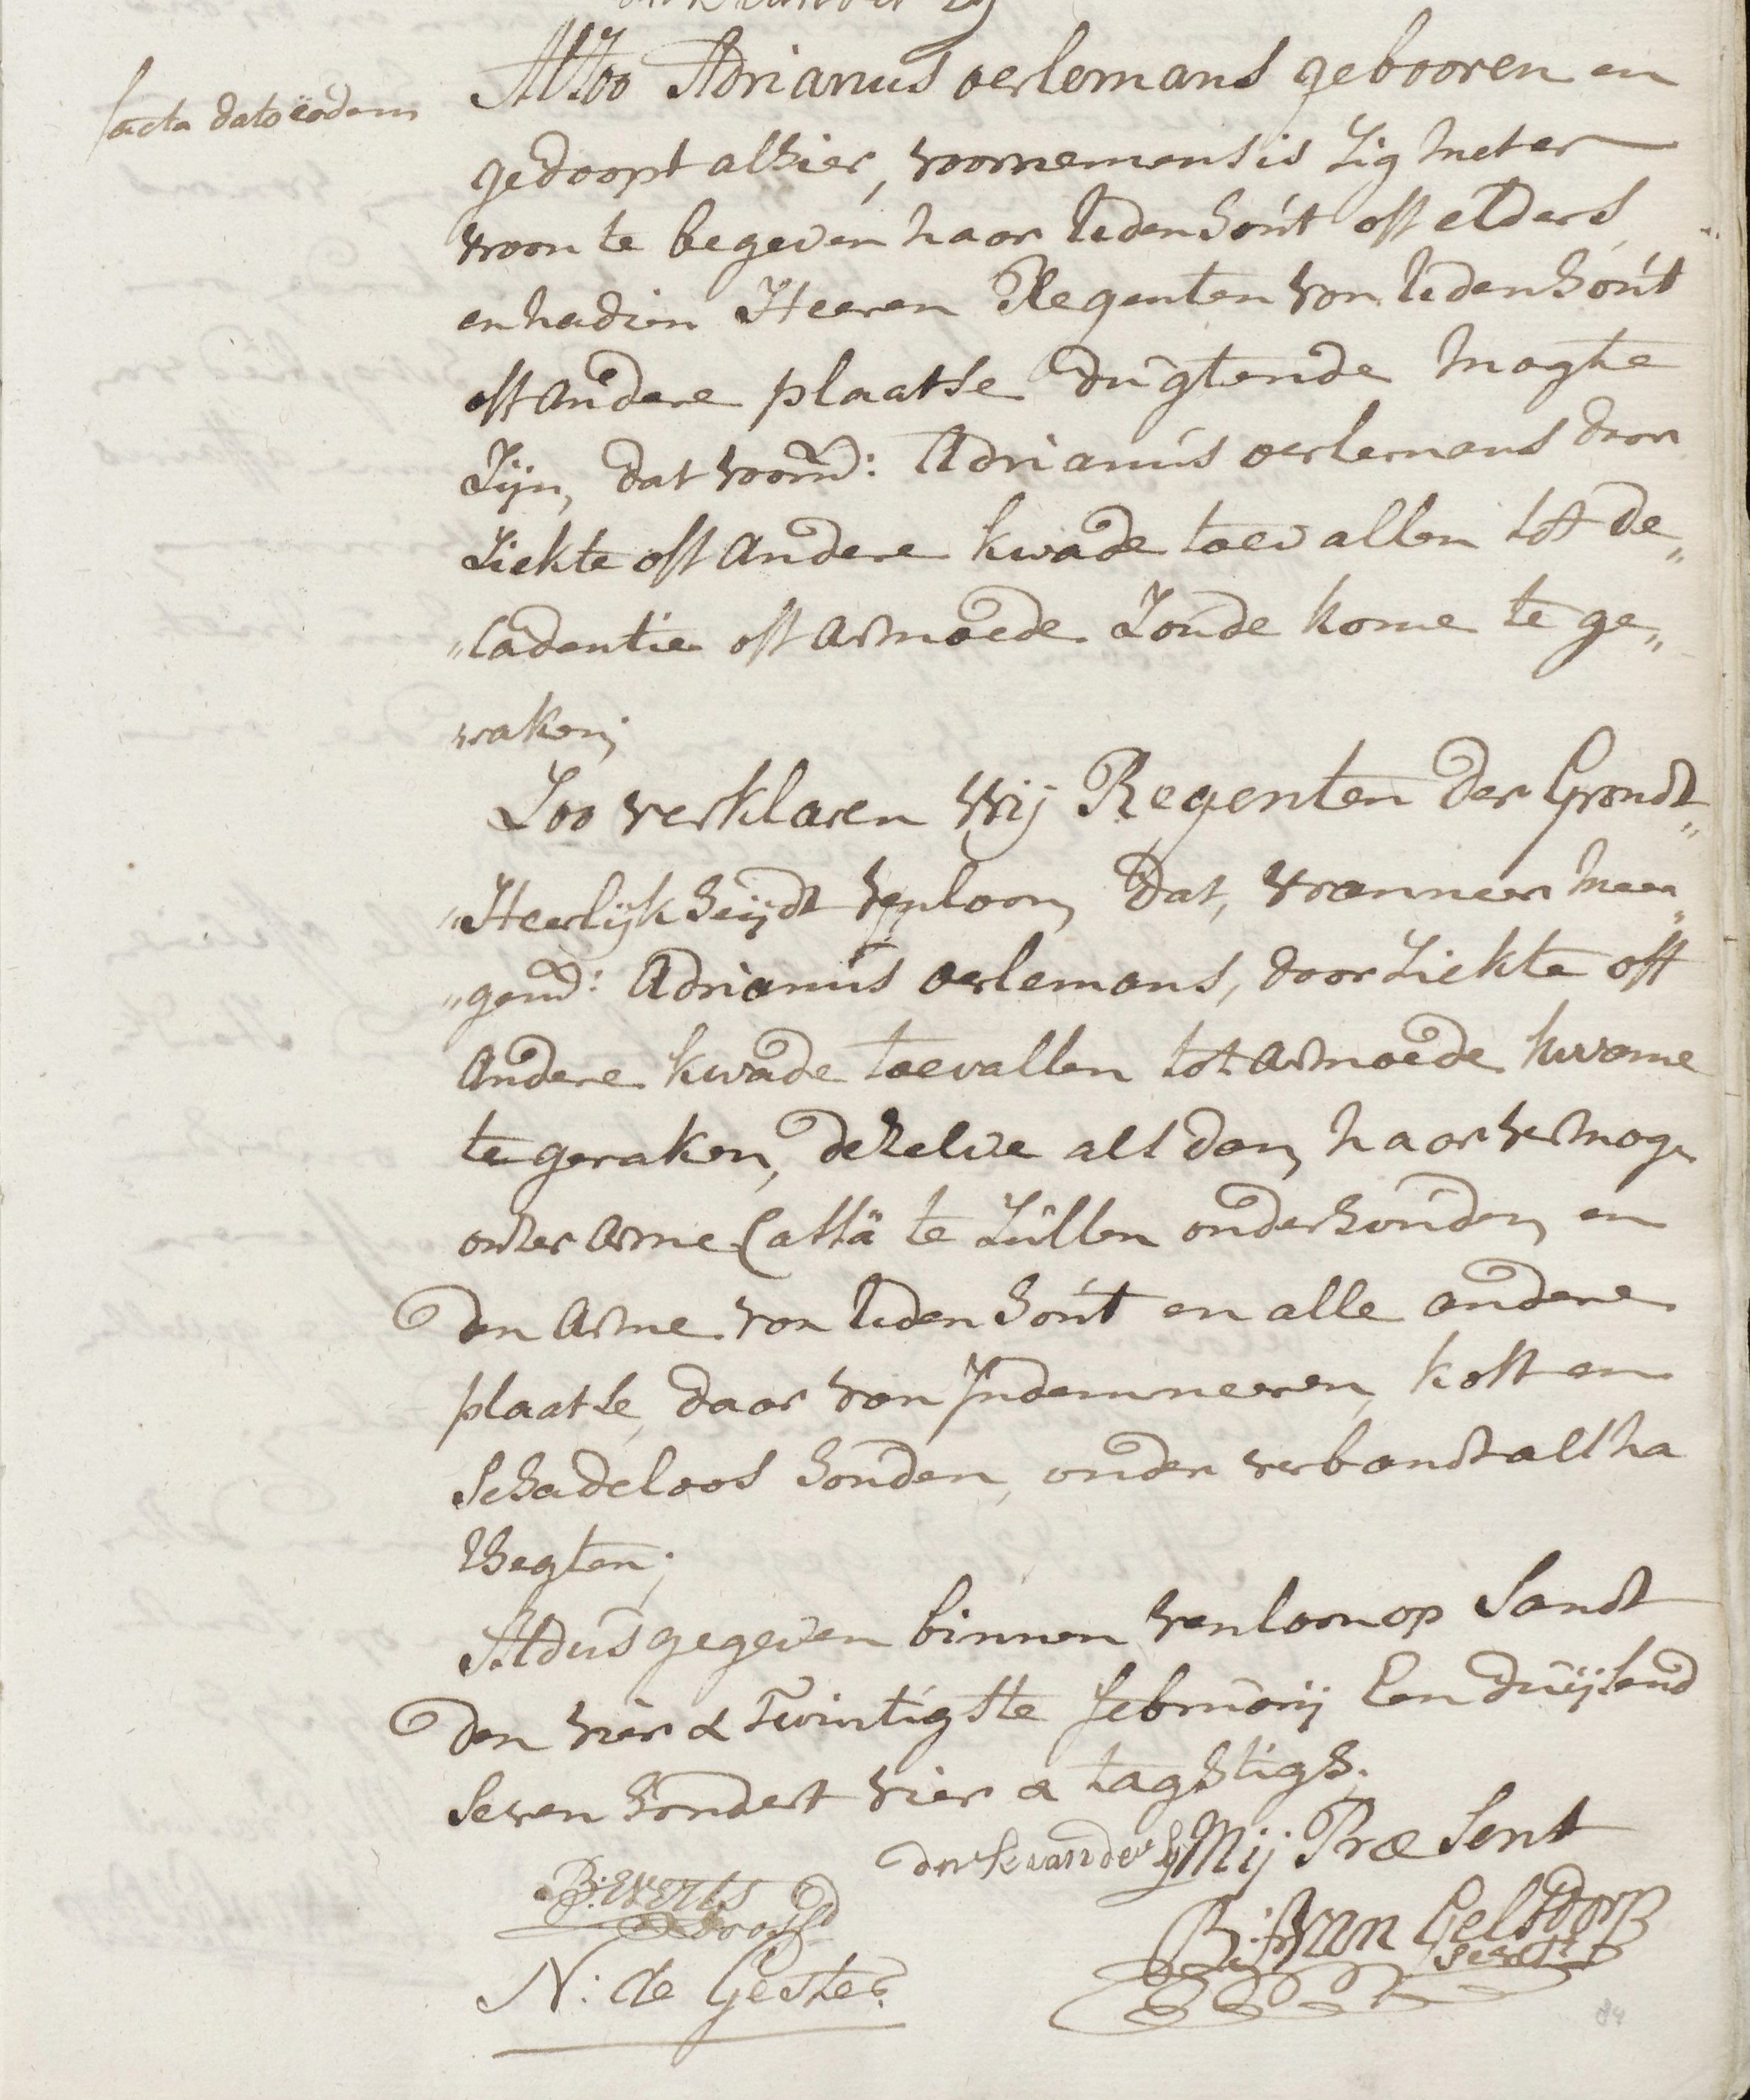 facta dato eodem
Alzoo Adrianus oerlemans gebooren en
gedoopt alhier, voornemens is zig met er
woon te begeven naar Udenhout off elders
en nadien Heeren Regenten van Udenhout
off andere plaatse dugtende mogte
Zijn, dat voorn̄d: Adrianus oerlemans door
Ziekte off andere kwade toevallen tot de„
„cadentie off armoede zoude kome te ge„
raken;
Zoo verklaren Wij Regenten der Grondt„
„Heerlijkheijdt venloon, dat, wanneer meer„
„gend: Adrianus oerlemans, door Ziekte off
andere kwade toevallen tot armoede kwame
te geraken, dezelve als dan, naar vermoge
onzer arme Cassa te zullen onderhouden, en
den arme van Udenhout en alle andere
plaatse, daar van Indemneeren, kost en
schadeloos houden, onder verbandt als na
Regten;
Aldus gegeven binnen venloon op Sandt
den vier & Twintigste februarij Een duijsend
seven hondert vier & taghtigh.
B: Everts
Drosst
N: de Gester
Mij Præsent
B: van Gelsdorp
Secrets
84